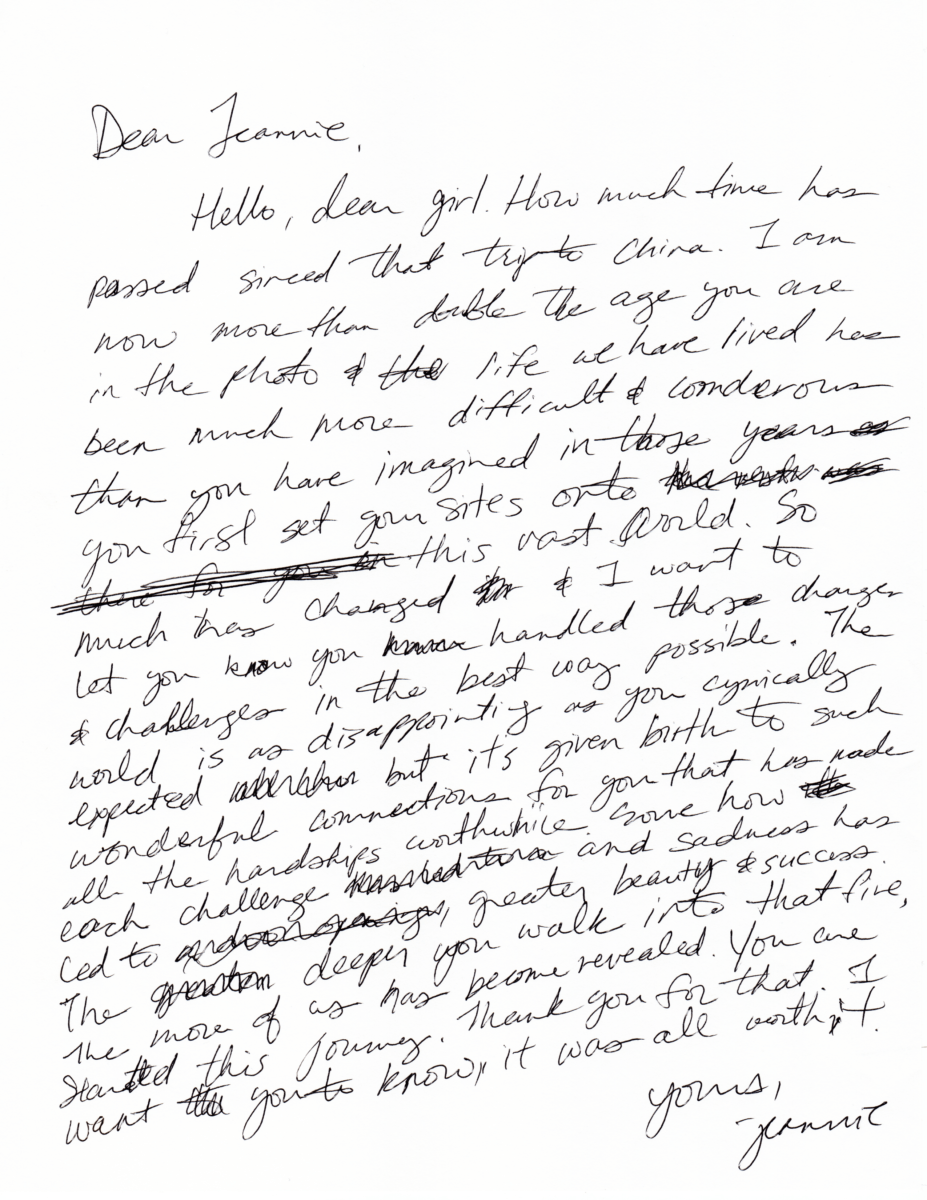 Dear Jeannie,
Hello, dear girl. How much time has
passed sinced that trip to China. I am
now more than double the age you are
in the photo & the life we have lived has
been much more difficult & wonderous
than you have imagined in those years
you first set your sites onto
this vast World. So
much has changed & I want to
let you know you handled those changes
& challenges in the best way possible. The
world is as disappointing as you cynically
expected but it's given birth to such
wonderful connections for you that has made
all the hardships worthwhile. Some how
each challenge and sadness has
led to greater beauty & success.
The deeper you walk into that fire,
the more of us has become revealed. You are
Started this journey. Thank you for that. I
want you to know, it was all worth it.
yours,
-Jeannie